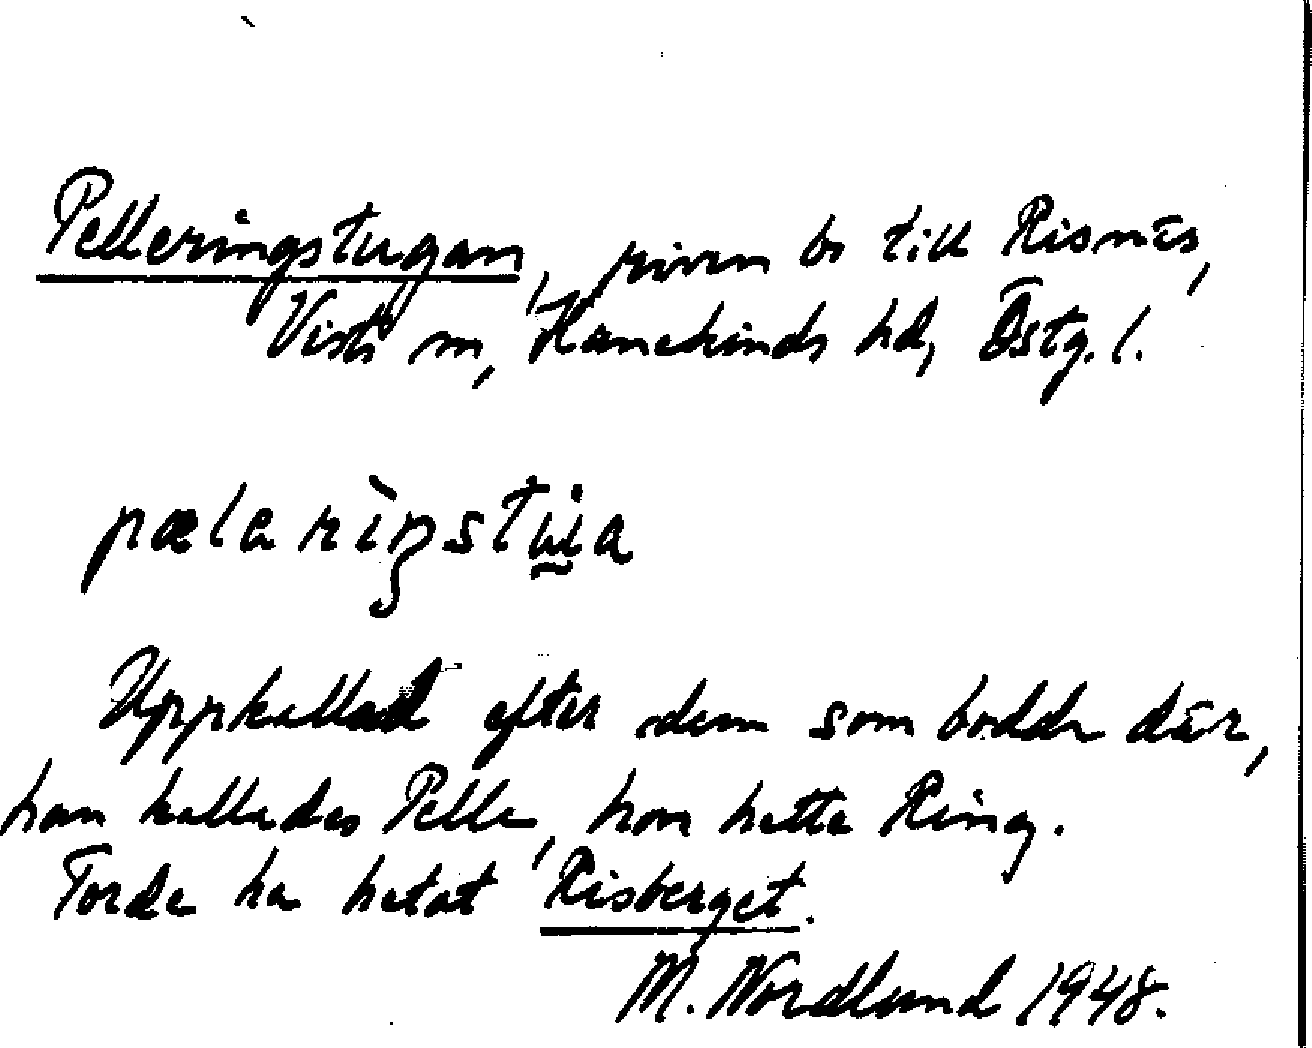 Pelleringstugan, riven bs till Risnäs,
Vists sn, Hanekinds hd, Östg. l.
pælarìŋstu̯ia
Uppkallad efter dem som bodde där,
han kallades Pelle, hon hette Ring.
Torde ha hetat Risberget.
M. Nordlund 1948.